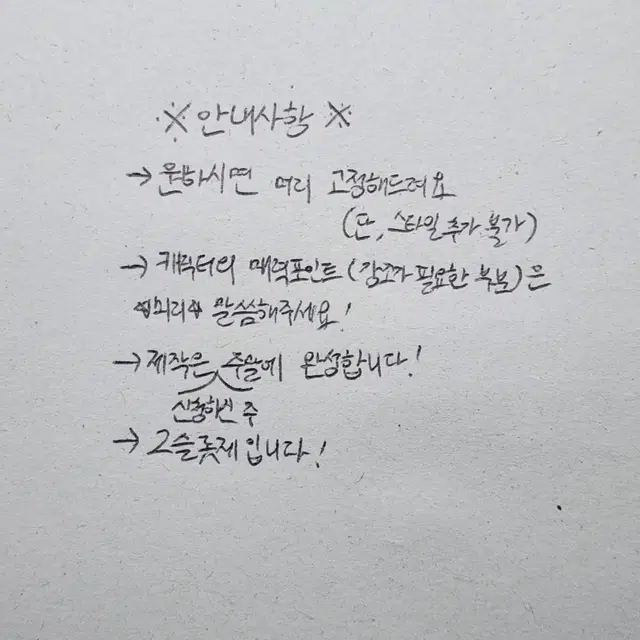 ※ 안내사항 ※
→ 원하시면 머리 고정해드려요
(단, 스타일 추가 불가)
→ 캐릭터의 매력포인트 (강조가 필요한 부분)은
미리 말씀해주세요!
→ 제작은 주말에 완성합니다!
신청하신 주
→ 2슬롯제입니다!